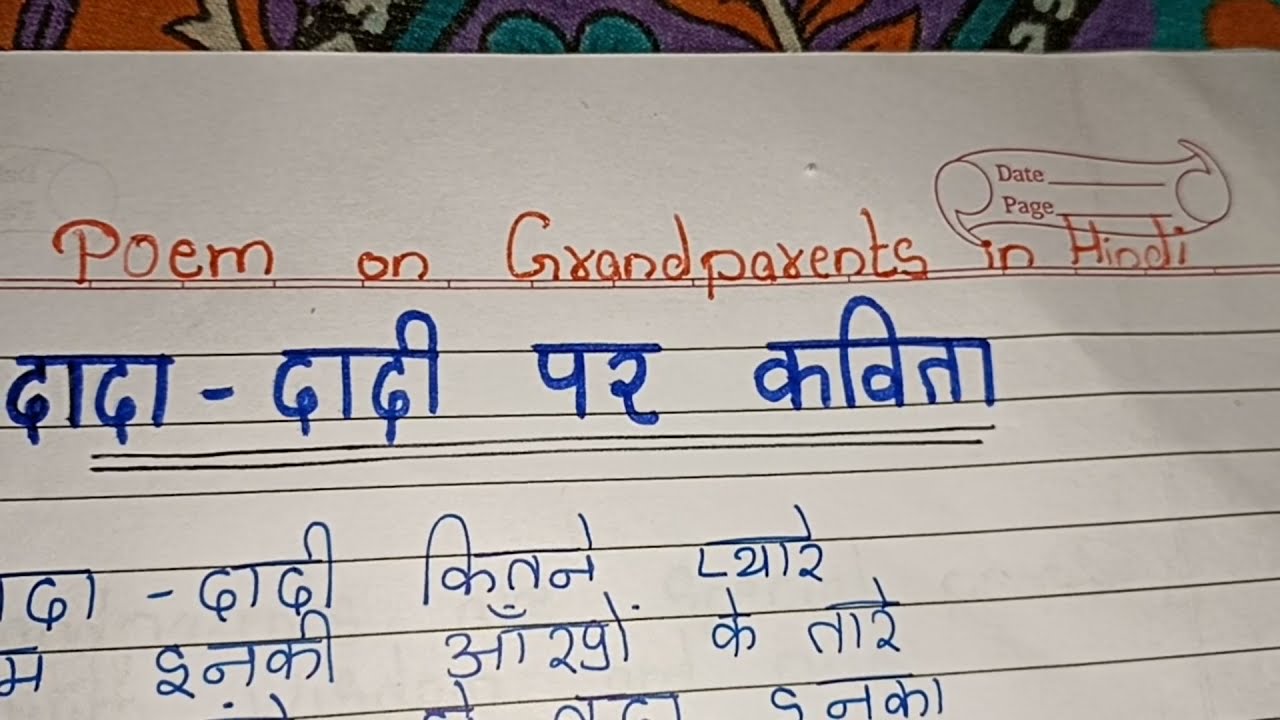 Date
Page
Poem on Grandparents in Hindi
दादा - दादी पर कविता
दादा - दादी कितने प्यारे
हम इनकी आँखों के तारे
इनका